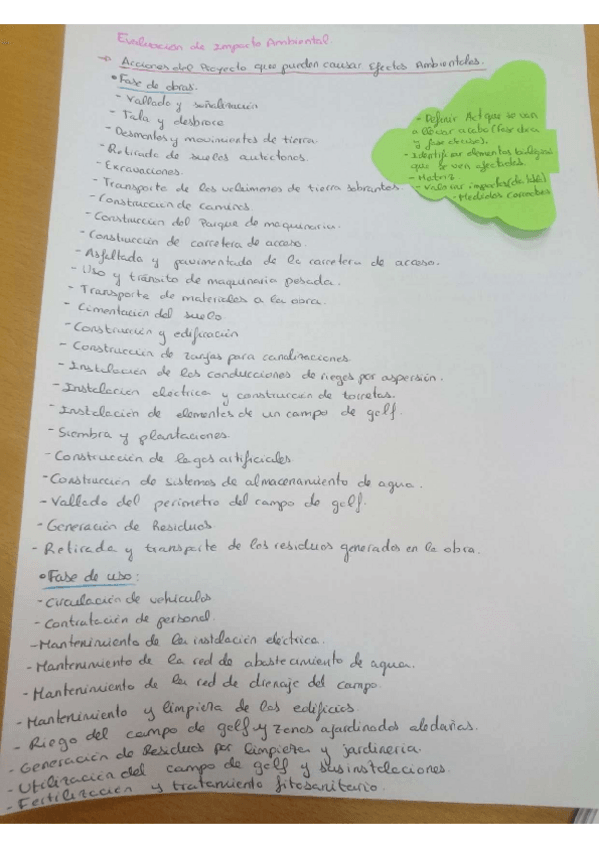 Evaluación de Impacto Ambiental.
→ Acciones del Proyecto que pueden causar Efectos Ambientales.
• Fase de obras.
- Vallado y señalización
- Tala y desbroce
- Desmontes y movimientos de tierra
- Retirada de suelos autóctonos.
- Excavaciones.
- Transporte de los volúmenes de tierra sobrantes.
- Construcción de caminos.
- Construcción del Parque de maquinaria.
- Construcción de carretera de acceso.
- Asfaltado y pavimentado de la carretera de acceso.
- Uso y tránsito de maquinaria pesada.
- Transporte de materiales a la obra.
- Cimentación del suelo.
- Construcción y edificación
- Construcción de zanjas para canalizaciones
- Instalación de las conducciones de riegos por aspersión.
- Instalación eléctrica y construcción de torretas.
- Instalación de elementos de un campo de golf.
- Siembra y plantaciones.
- Construcción de lagos artificiales.
- Construcción de sistemas de almacenamiento de agua.
- Vallado del perímetro del campo de golf.
- Generación de Residuos
- Retirada y transporte de los residuos generados en la obra.
• Fase de uso:
- Circulación de vehículos
- Contratación de personal.
- Mantenimiento de la instalación eléctrica.
- Mantenimiento de la red de abastecimiento de agua.
- Mantenimiento de la red de drenaje del campo.
- Mantenimiento y limpieza de los edificios.
- Riego del campo de golf y zonas ajardinadas aledañas.
- Generación de Residuos por limpieza y jardinería.
- Utilización del campo de golf y sus instalaciones.
- Fertilización y tratamiento fitosanitario.
- Definir Act que se van
a llevar a cabo (fase obra
y fase de uso).
- Identificar elementos
que se ven afectados.
- Matriz
- Valorar impactos
- Medidas